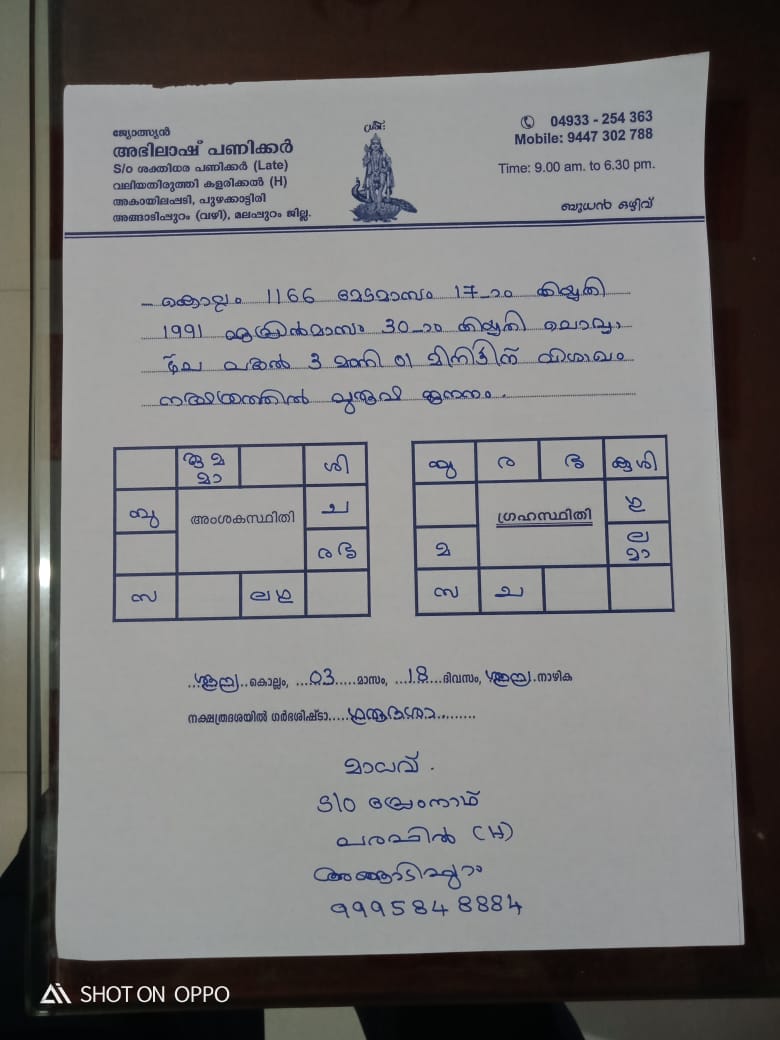 ജ്യോത്സ്യൻ
അഭിലാഷ് പണിക്കർ
S/o ശക്തിധര പണിക്കർ (Late)
വലിയതിരുത്തി കളരിക്കൽ (H)
അകായിലപ്പടി, പുഴക്കാട്ടിരി
അങ്ങാടിപ്പുറം (വഴി), മലപ്പുറം ജില്ല.
ശ്രീഃ
04933 - 254 363
Mobile: 9447 302 788
Time: 9.00 am. to 6.30 pm.
ബുധൻ ഒഴിവ്
കൊല്ലം 1166 മേടമാസം 17-ാം തിയ്യതി
1991 ഏപ്രിൽമാസം 30-ാം തിയ്യതി ചൊവ്വാ
ഴ്ച പകൽ 3 മണി 01 മിനിട്ടിന് വിശാഖം
നക്ഷത്രത്തിൽ പുരുഷ ജനനം.
കു മ
മാ
ശി
ബു
അംശകസ്ഥിതി
ച
ര ഭൃ
സ
ല ഗു
ബു
ര
ഭൃ
കു ശി
ഗ്രഹസ്ഥിതി
ഗു
മ
ല
മാ
സ
ച
ശൂന്യ കൊല്ലം, 03 മാസം, 18 ദിവസം, ശൂന്യ നാഴിക
നക്ഷത്രദശയിൽ ഗർഭശിഷ്ടാ ഗുരുദശാ
മാധവ്.
S/O പ്രേംനാഥ്
(H)
അങ്ങാടിപ്പുറം
9995848884
SHOT ON OPPO